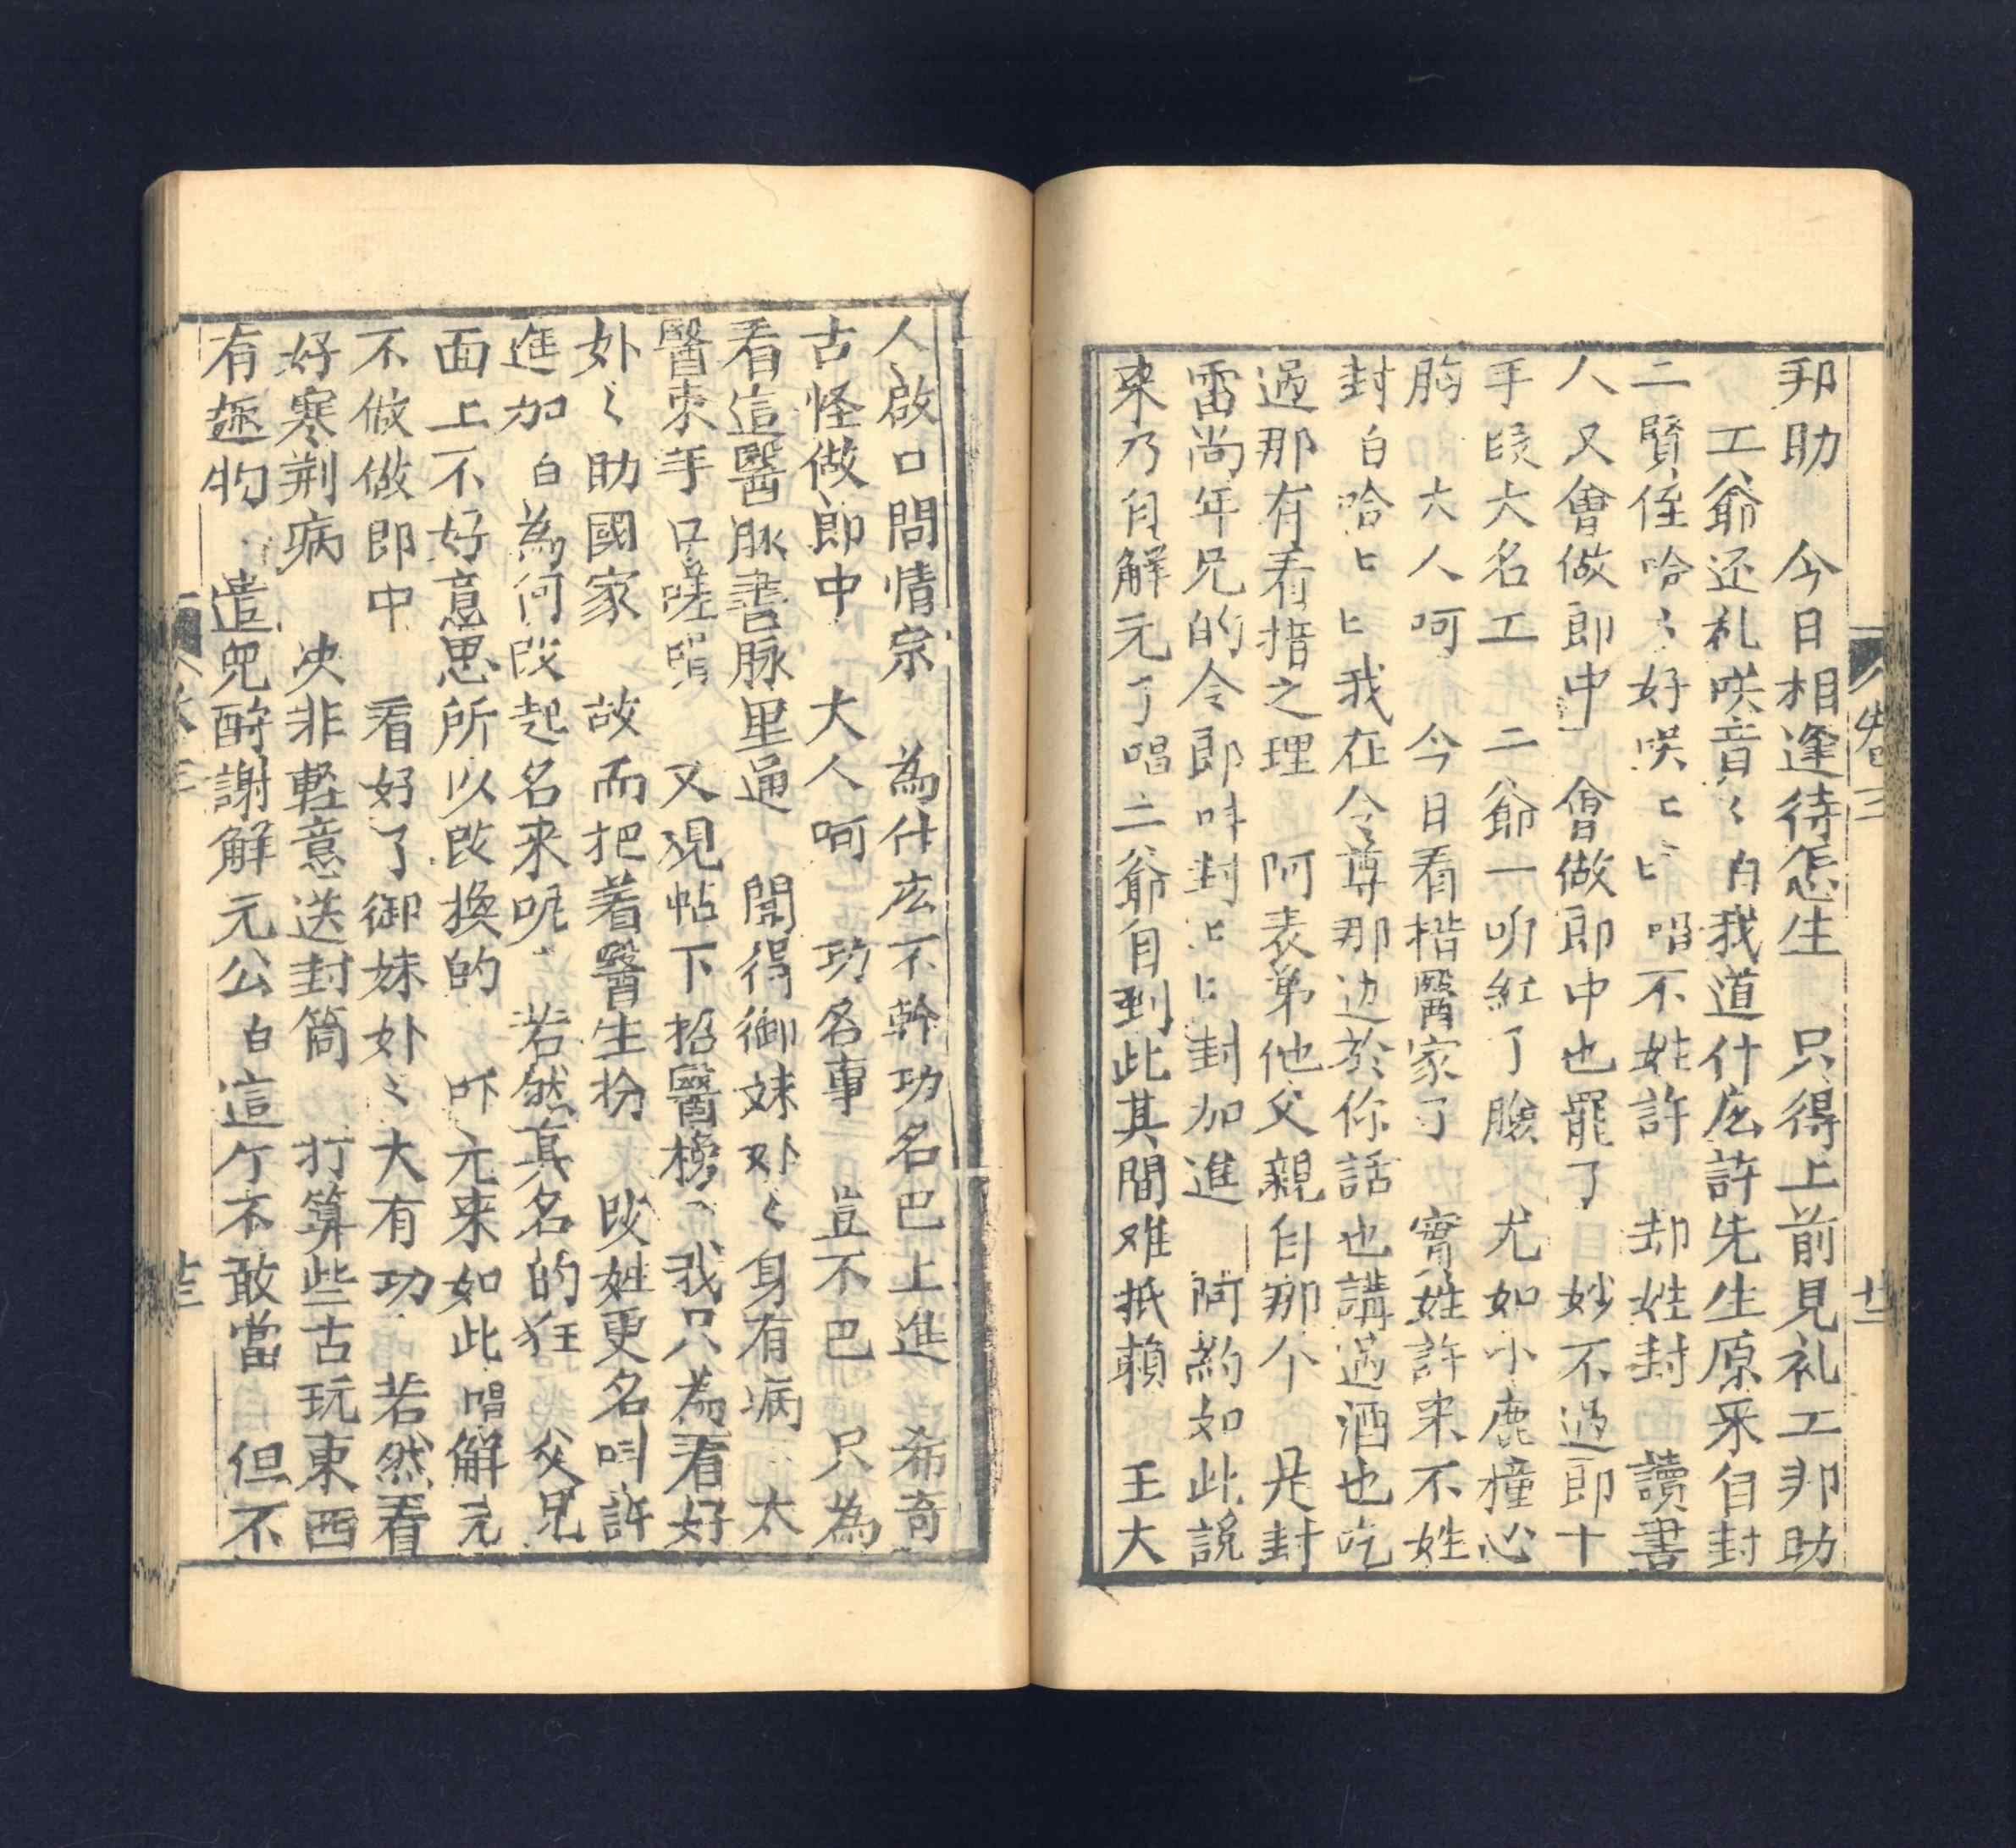 卷三 廿二
邦助 今日相逢待怎生 只得上前見礼工邦助
工爺还礼咲音〻白我道什庅許先生原来自封
二賢侄哈〻好咲匕匕唱不姓許 却姓封 讀書
人又會做郎中 會做郎中也罷了 妙不過郎十
手段大名工 二爺一听紅了臉 尤如小鹿撞心
胸 大人呵 今日看楷醫家了 實姓許来不姓
封白哈匕匕我在令尊那边於你話也講過酒也吃
過那有看措之理 阿表弟他父親自那个 是封
雷尚年兄的令郎叫封匕匕封加進 阿約如此說
来乃自解元了唱二爺自到此其間难抵賴 王大
人啟口問情宗 為什庅不幹功名巴上進 希奇
古怪做郎中 大人呵 功名事 豈不巴 只為
看這醫脉書脉里通 聞得御妹外〻身有病 太
醫束手只嗟 又現帖下招醫榜 我只為看好
外〻助國家 故而把着醫生扮 改姓更名叫許
進加白為何改起名来呢 若然真名的狂 父兄
面上不好意思所以改換的 吓元来如此唱解元
不做做郎中 看好了御妹外〻大有功 若然看
好寒荆病 决非輕意送封筒 打算些古玩東西
有趣物 遣兜酧謝解元公白這个不敢當 但不
三 廿三